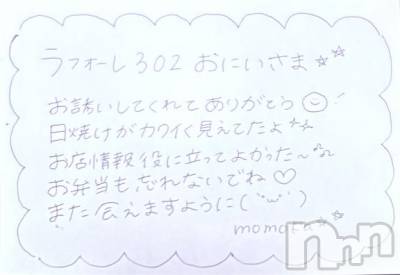 ラフォーレ302 おにいさま☆☆
お誘いしてくれて ありがとう☺!
日焼けがカワイく見えてたよ☆
お店情報役に立ってよかった〜♫
お弁当も忘れないでね♡
また会えますように(˘ω˘)
momoka☆
nnn